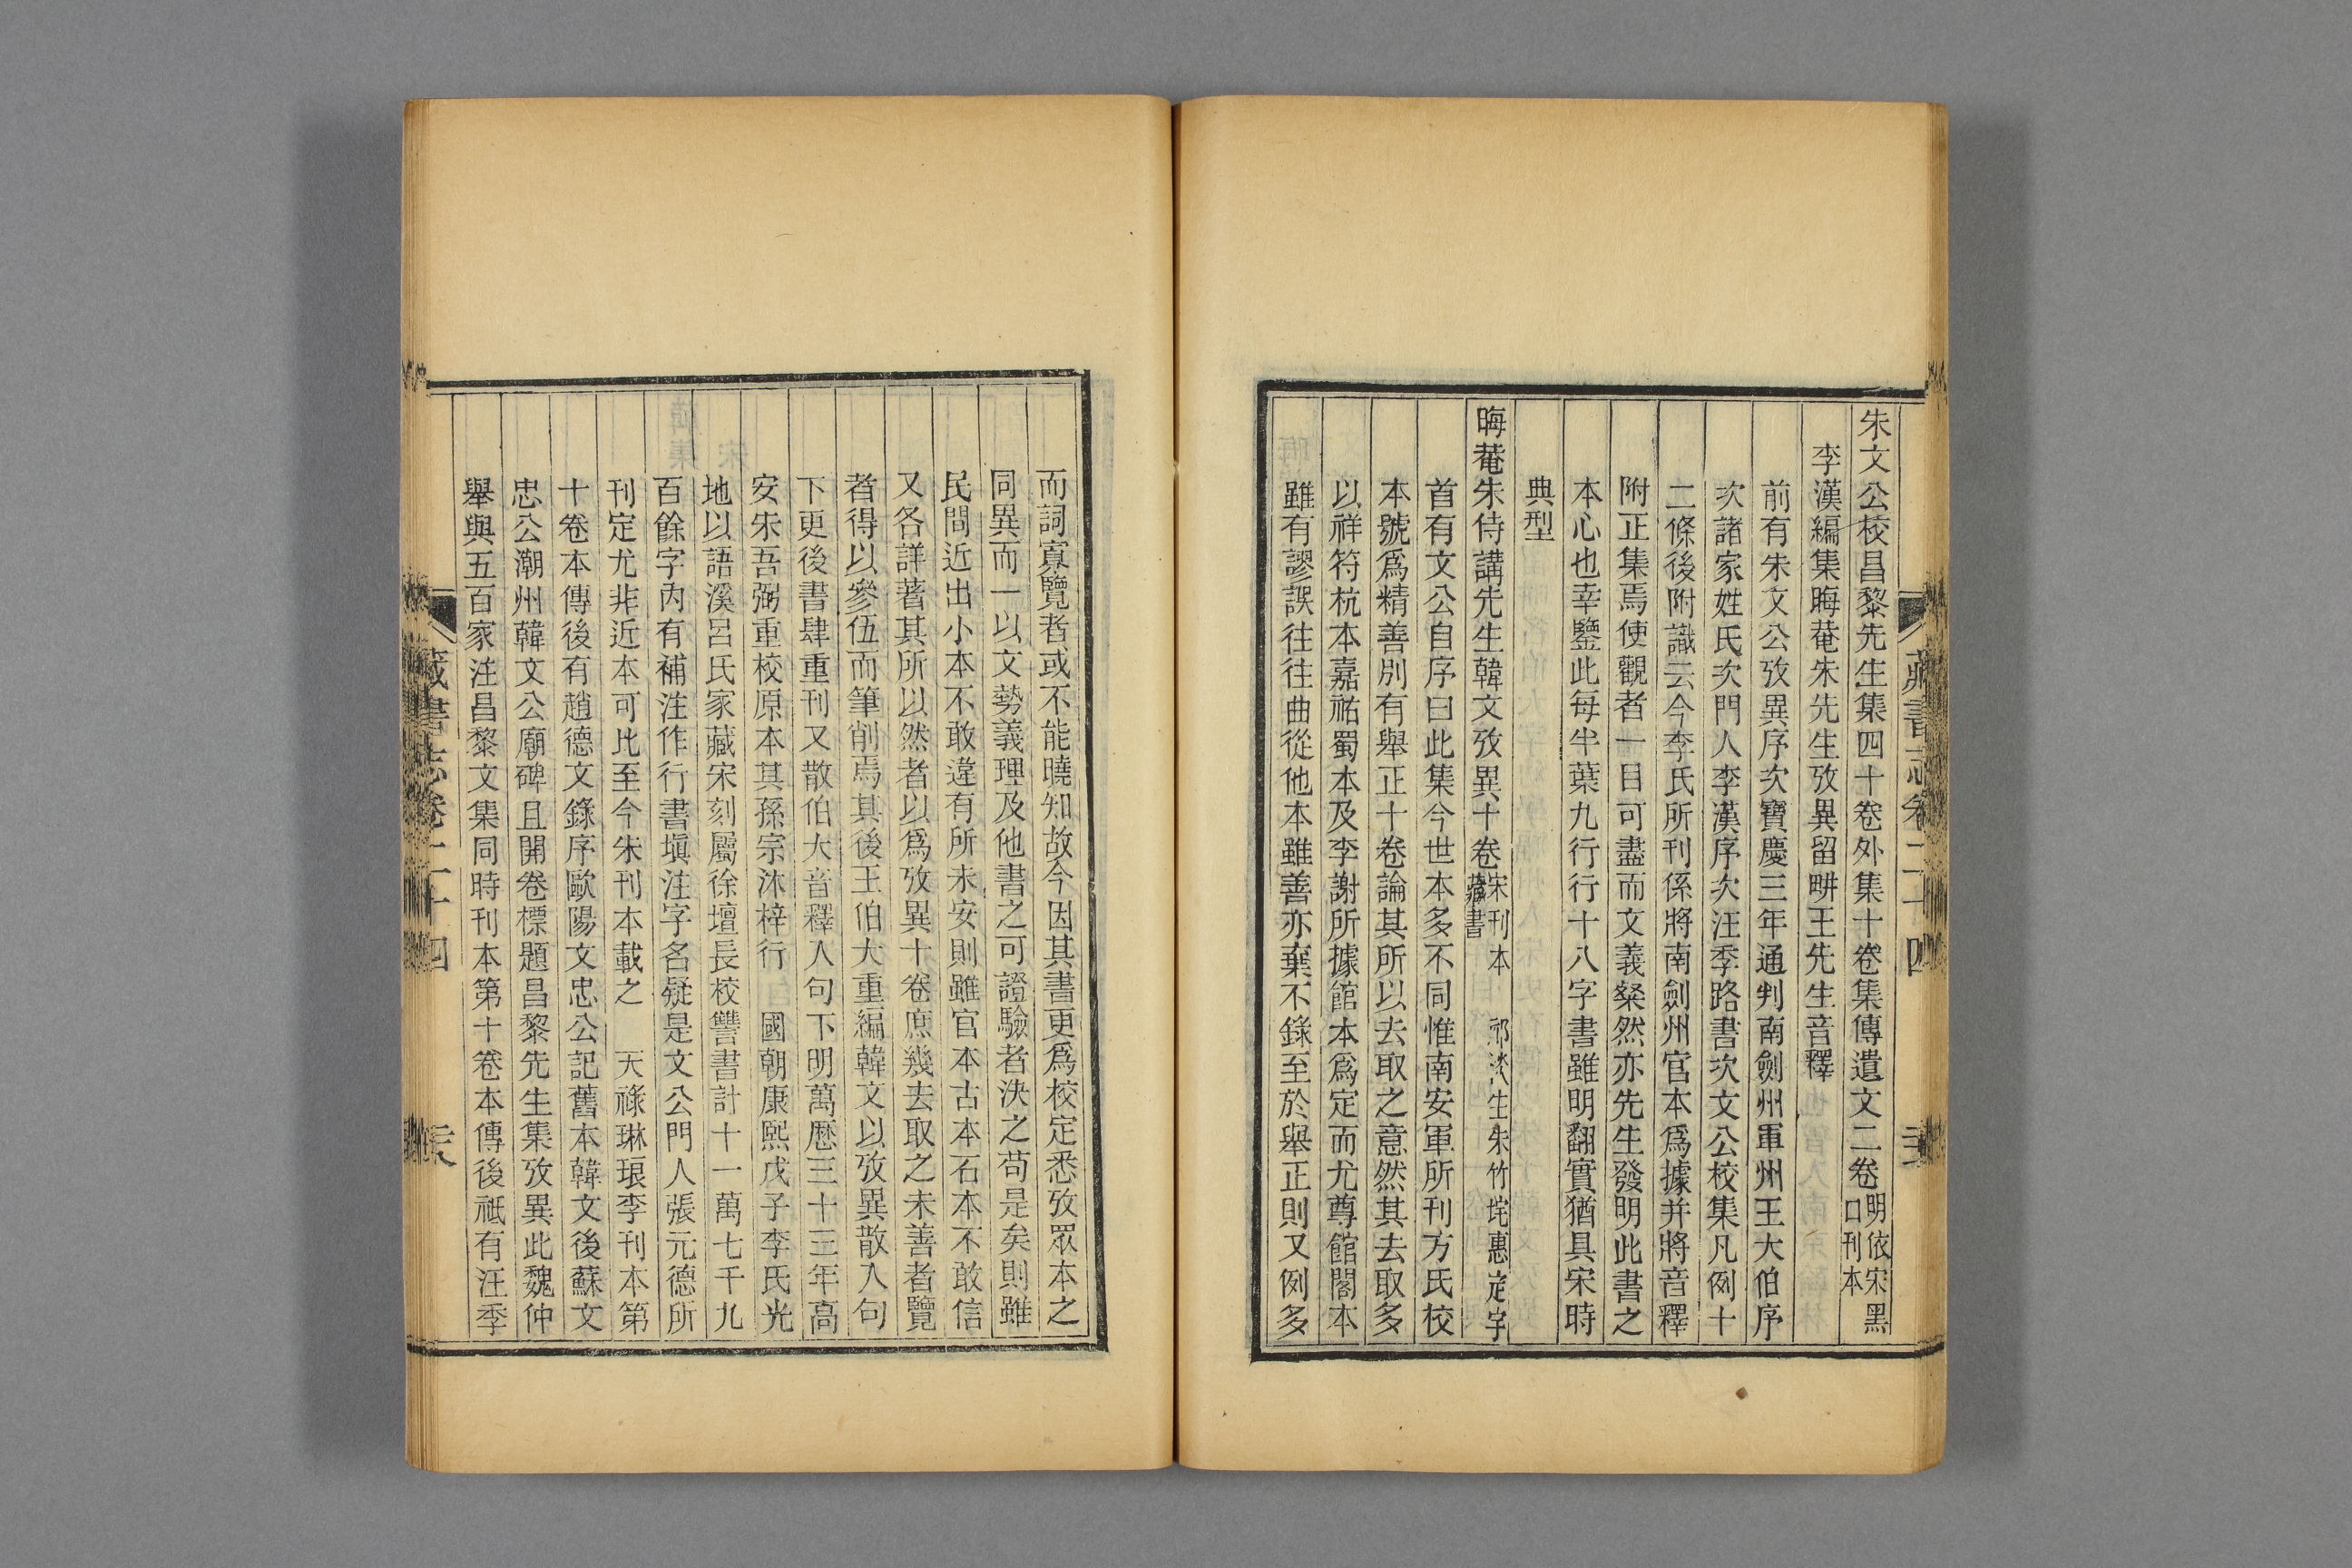 朱文公校昌黎先生集四十卷外集十卷集傳遺文二卷明依宋黑口刊本
李漢編集晦菴朱先生攷異留畊王先生音釋
前有朱文公攷異序次寶慶三年通判南劍州軍州王大伯序
次諸家姓氏次門人李漢序次汪季路書次文公校集凡例十
二條後附識云今李氏所刊係將南劍州官本爲據并將音釋
附正集焉使觀者一目可盡而文義粲然亦先生發明此書之
本心也幸鑒此每半葉九行行十八字書雖明翻實猶具宋時
典型
晦菴朱侍講先生韓文攷異十卷宋刊本 祁淡生朱竹垞惠定宇藏書
首有文公自序曰此集今世本多不同惟南安軍所刊方氏校
本號爲精善別有舉正十卷論其所以去取之意然其去取多
以祥符杭本嘉祐蜀本及李謝所據館本爲定而尤尊館閣本
雖有謬誤往往曲從他本雖善亦棄不錄至於舉正則又例多
而詞寡覽者或不能曉知故今因其書更爲校定悉攷眾本之
同異而一以文勢義理及他書之可證驗者決之苟是矣則雖
民間近出小本不敢違有所未安則雖官本古本石本不敢信
又各詳著其所以然者以爲攷異十卷庶幾去取之未善者覽
者得以參伍而筆削焉其後王伯大重編韓文以攷異散入句
下更後書肆重刊又散伯大音釋入句下明萬曆三十三年高
安朱吾弼重校原本其孫宗沐梓行 國朝康熙戊子李氏光
地以語溪呂氏家藏宋刻屬徐壇長校讐書計十一萬七千九
百餘字內有補注作行書塡注字名疑是文公門人張元德所
刊定尤非近本可比至今朱刊本載之 天祿琳琅李刊本第
十卷本傳後有趙德文錄序歐陽文忠公記舊本韓文後蘇文
忠公潮州韓文公廟碑且開卷標題昌黎先生集攷異此魏仲
舉與五百家注昌黎文集同時刊本第十卷本傳後祗有汪季
藏書志卷二十四